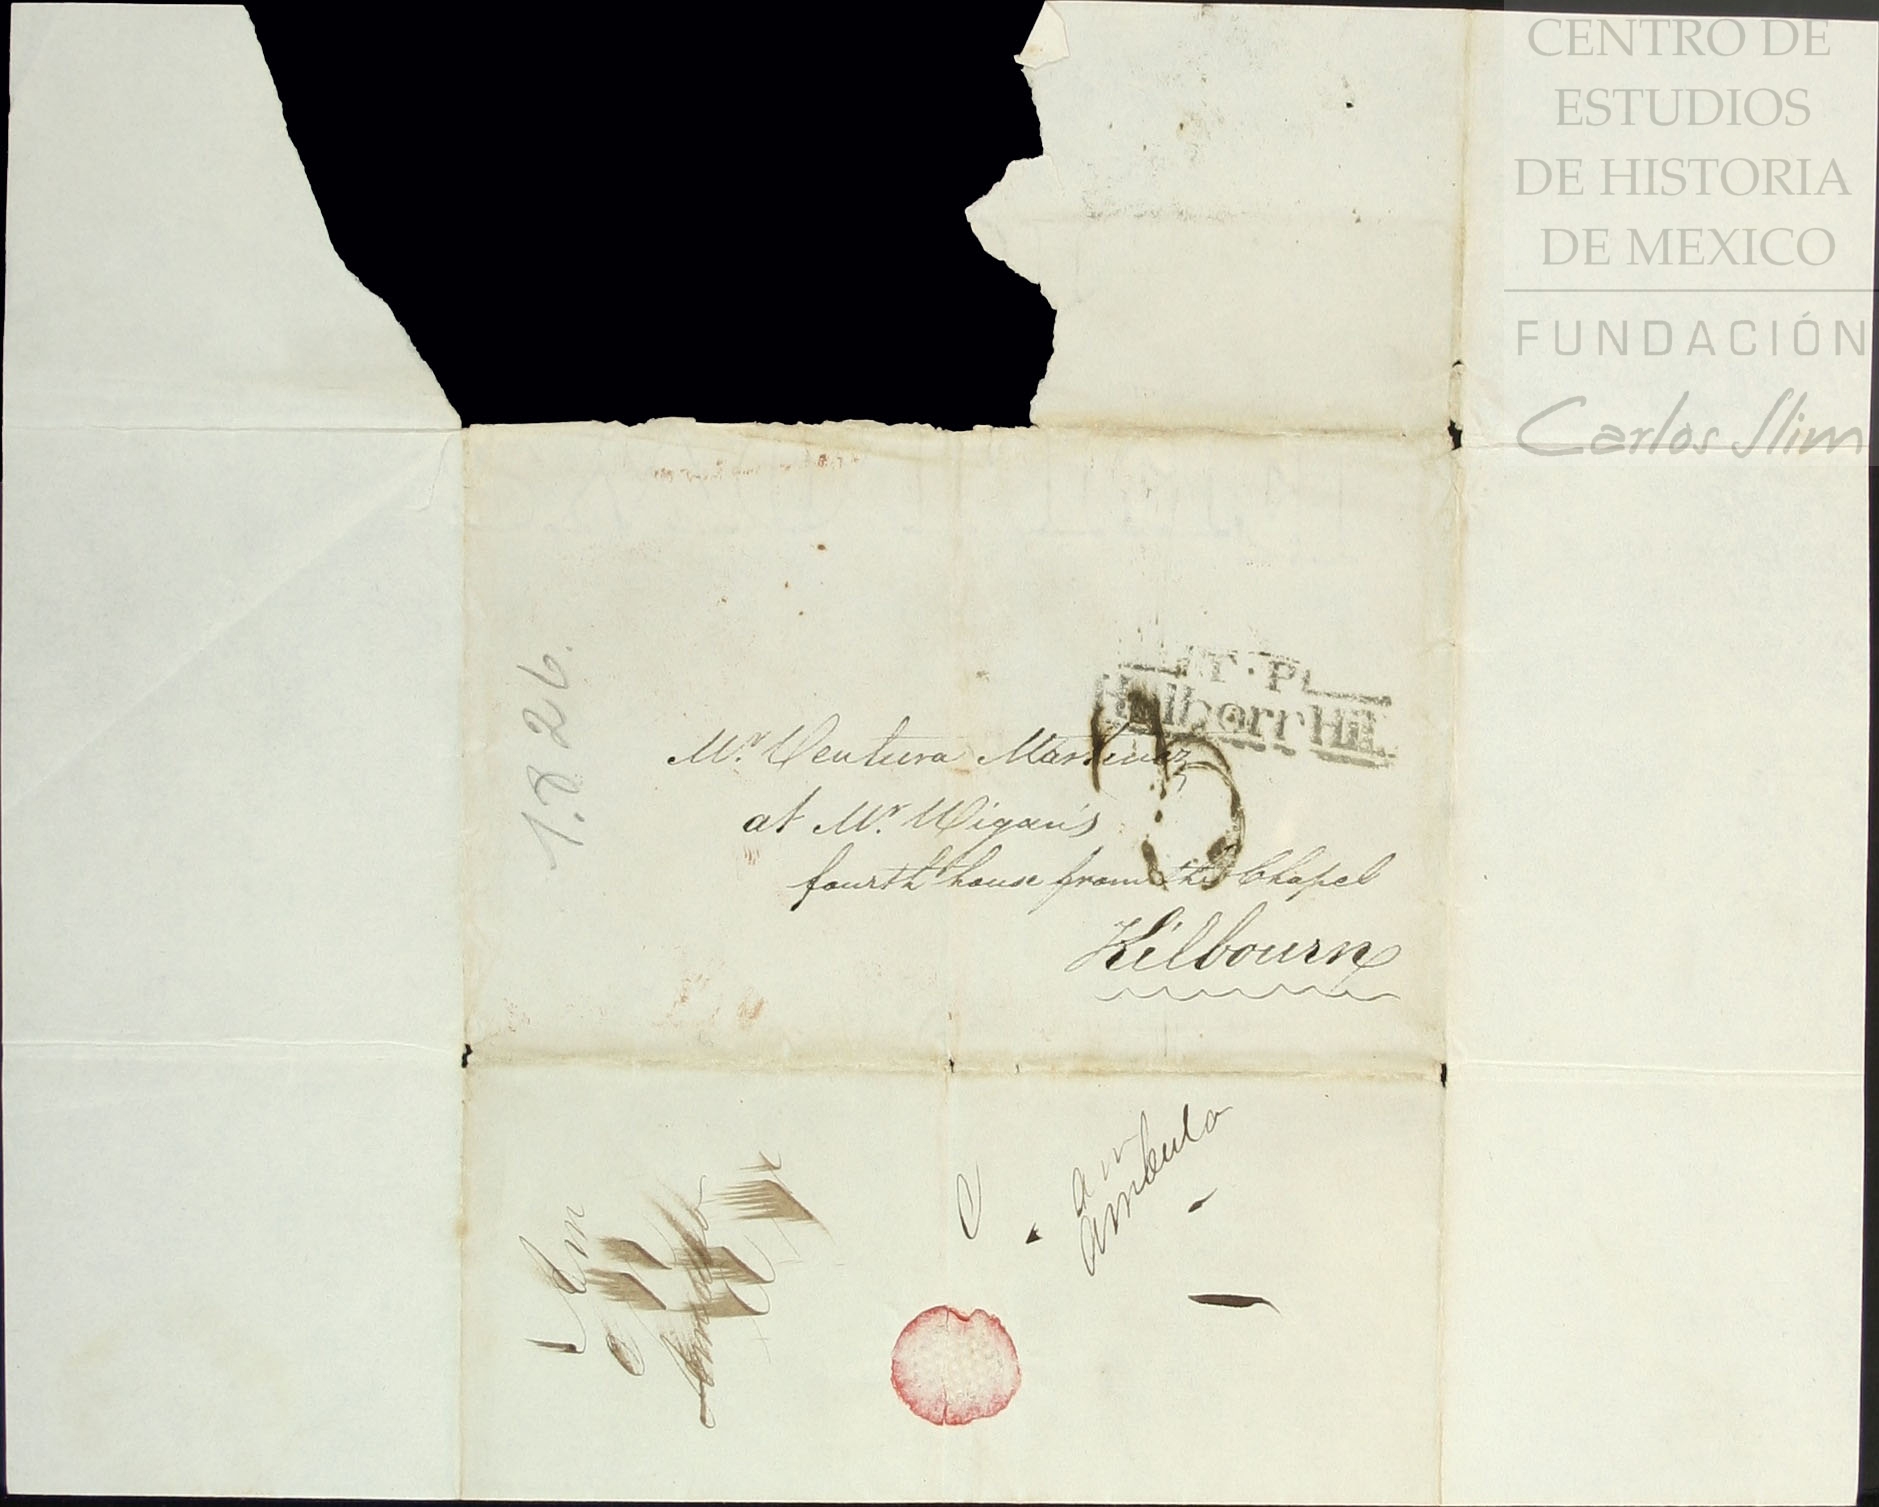 CENTRO DE
ESTUDIOS
DE HISTORIA
DE MEXICO
FUNDACIÓN
Carlos Slim
1826.
T.P
Holborn Hill
3
Mr. Ventura Martinez
at Mr. Wigan's
fourth house from the Chapel
Kilbourn